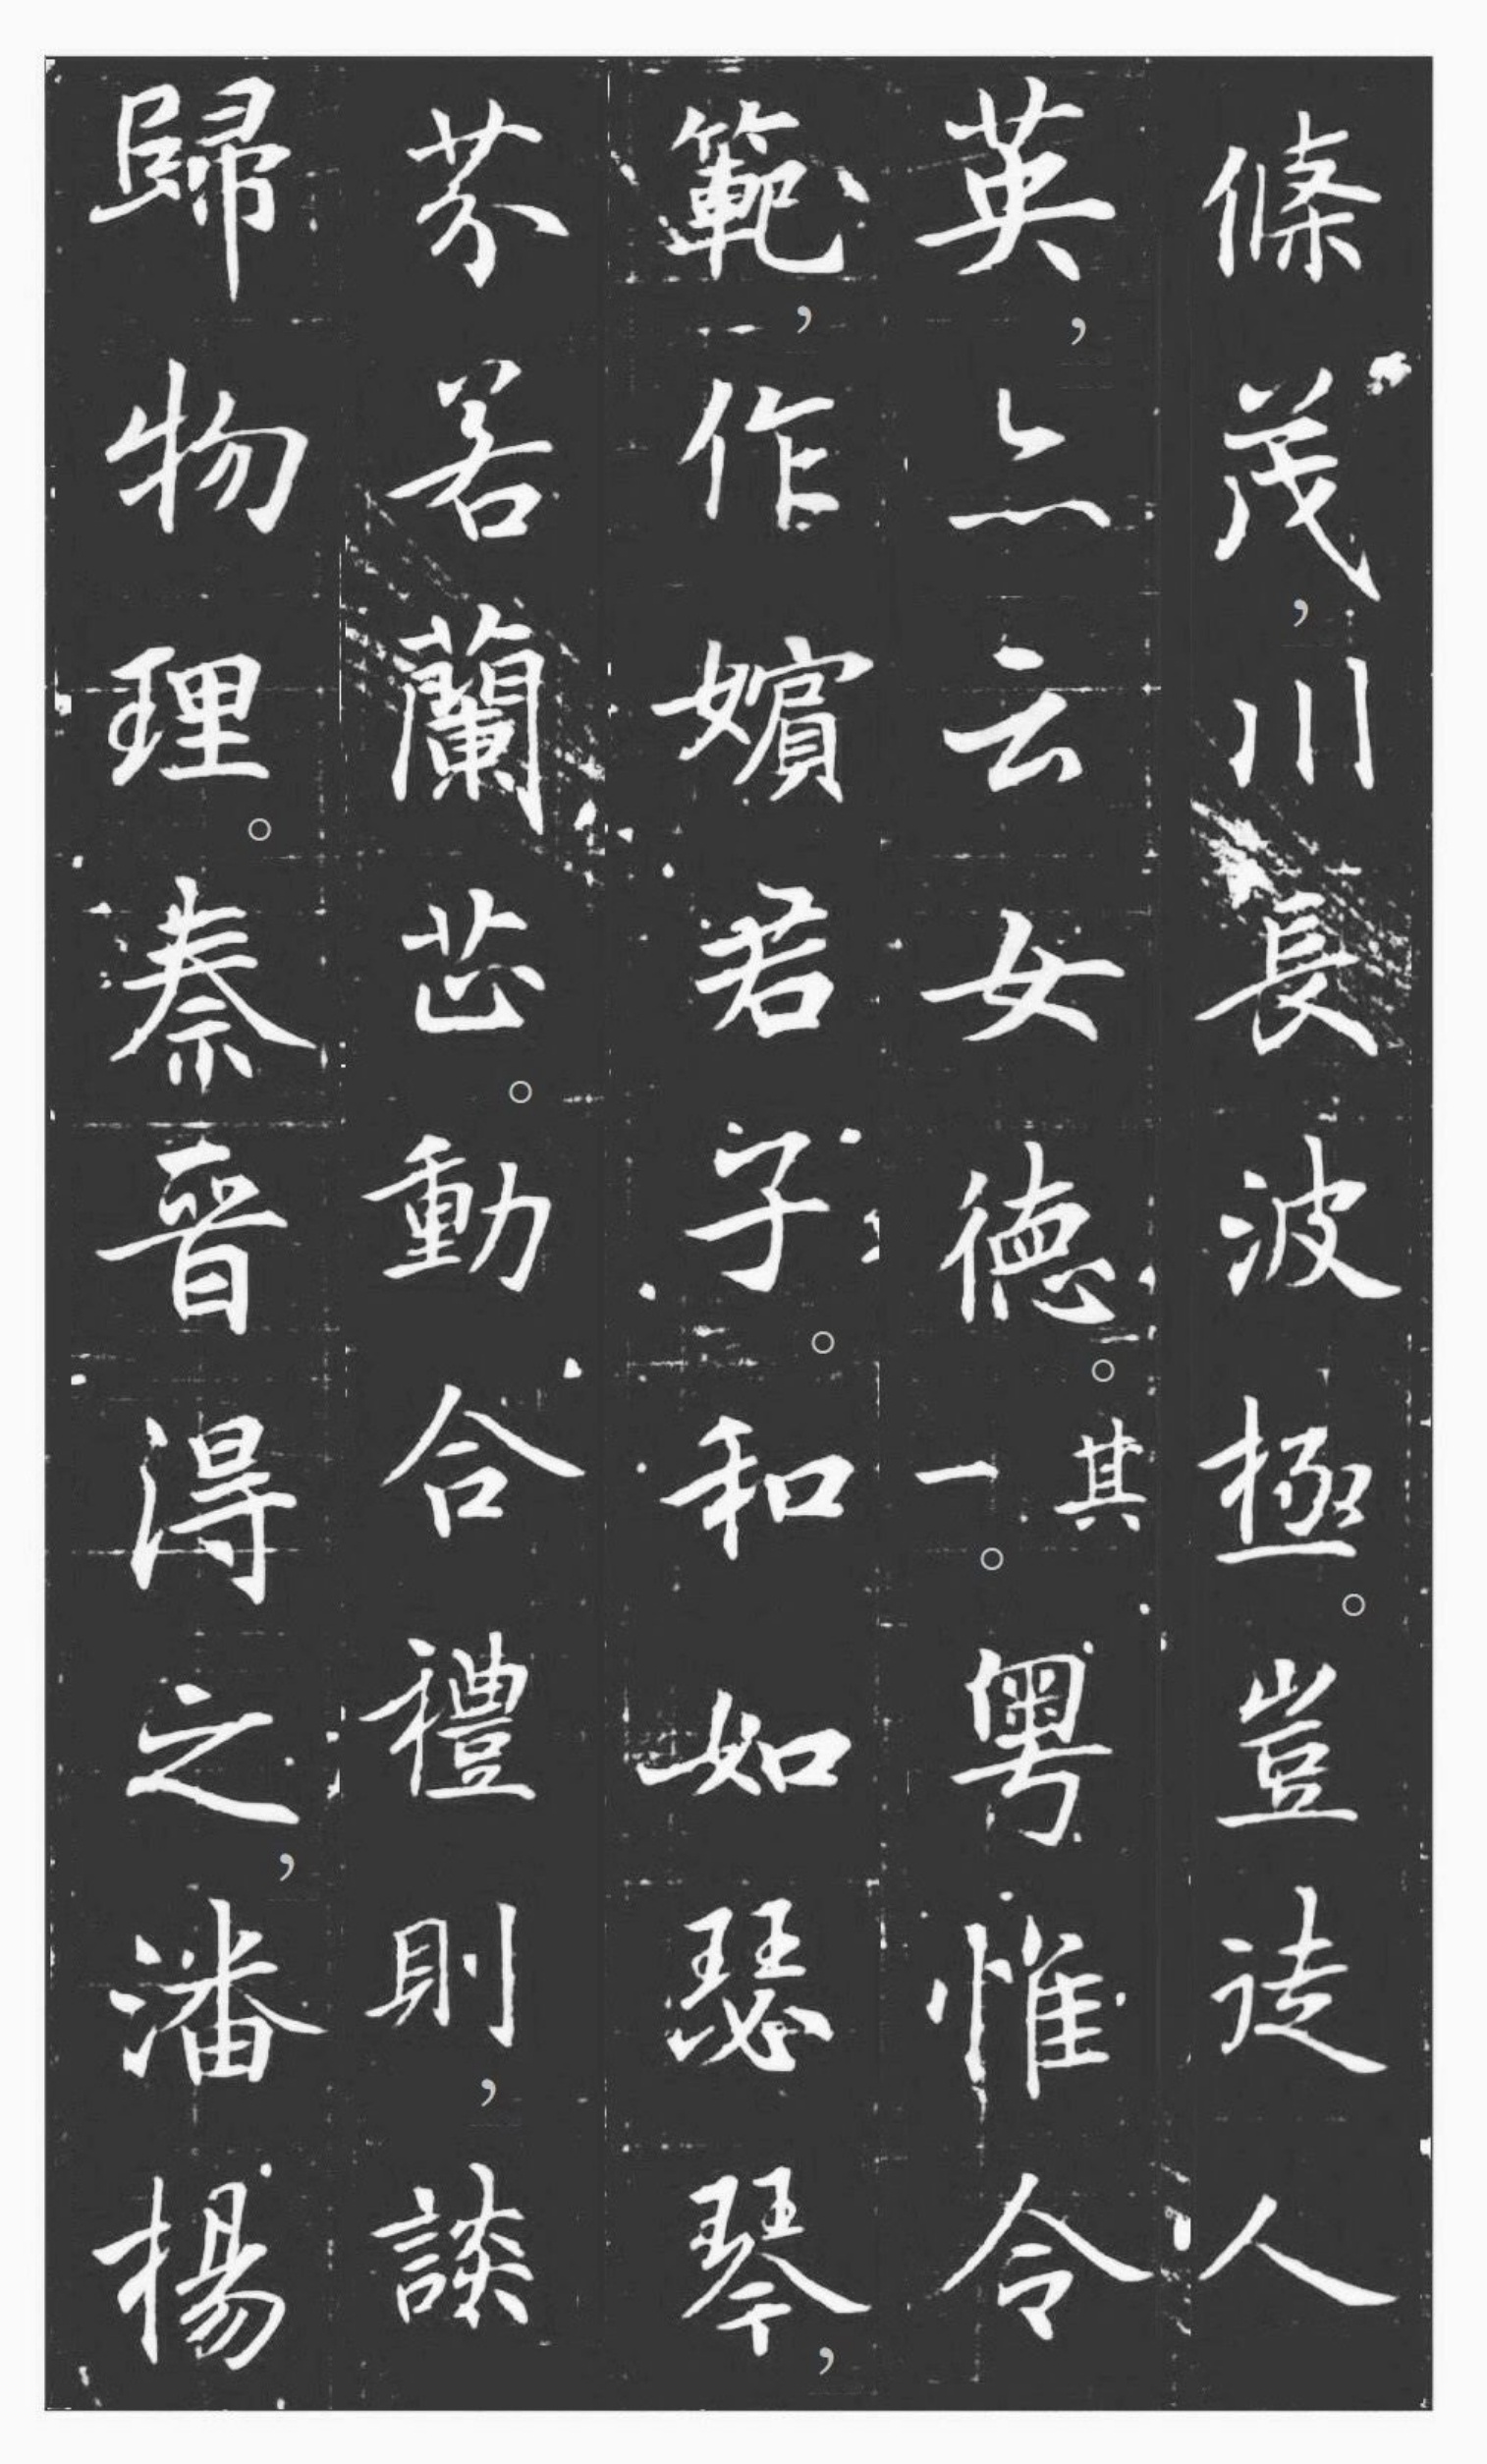 條茂，川長波極。豈徒人
英，亦云女德。其一。粵惟令
範，作嬪君子。和如瑟琴，
芬若蘭芷。動合禮則，談
歸物理。秦晉得之，潘楊